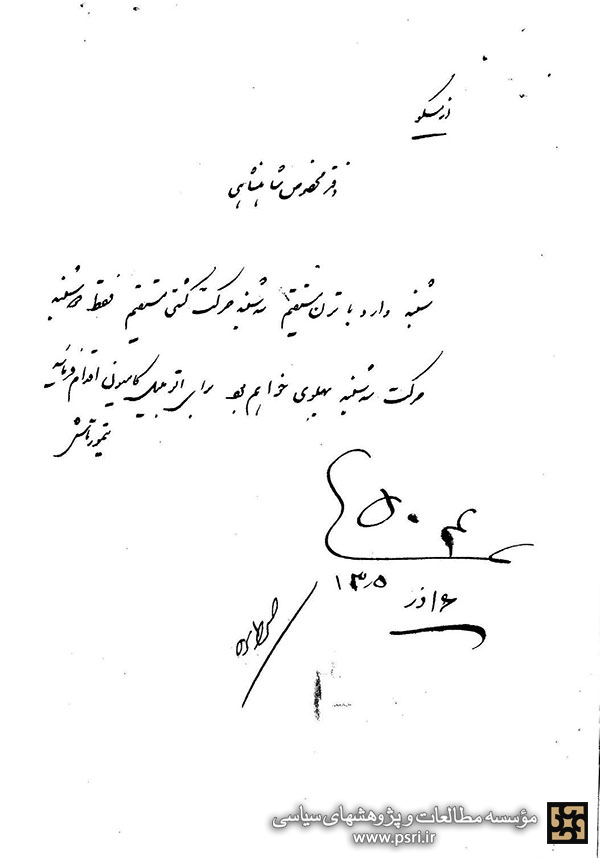 از مسکو
دفتر مخصوص شاهنشاهی
شنبه وارد با ترن مستقیم سه‌شنبه حرکت کشتی مستقیم فقط سه‌شنبه
حرکت سه‌شنبه پهلوی خواهم بود برای اتومبیل کامیون اقدام فرمایید
تیمورتاش
۴۰۵
۶ اذر ۱۳۰۵
مؤسسه مطالعات و پژوهشهای سیاسی
www.psri.ir